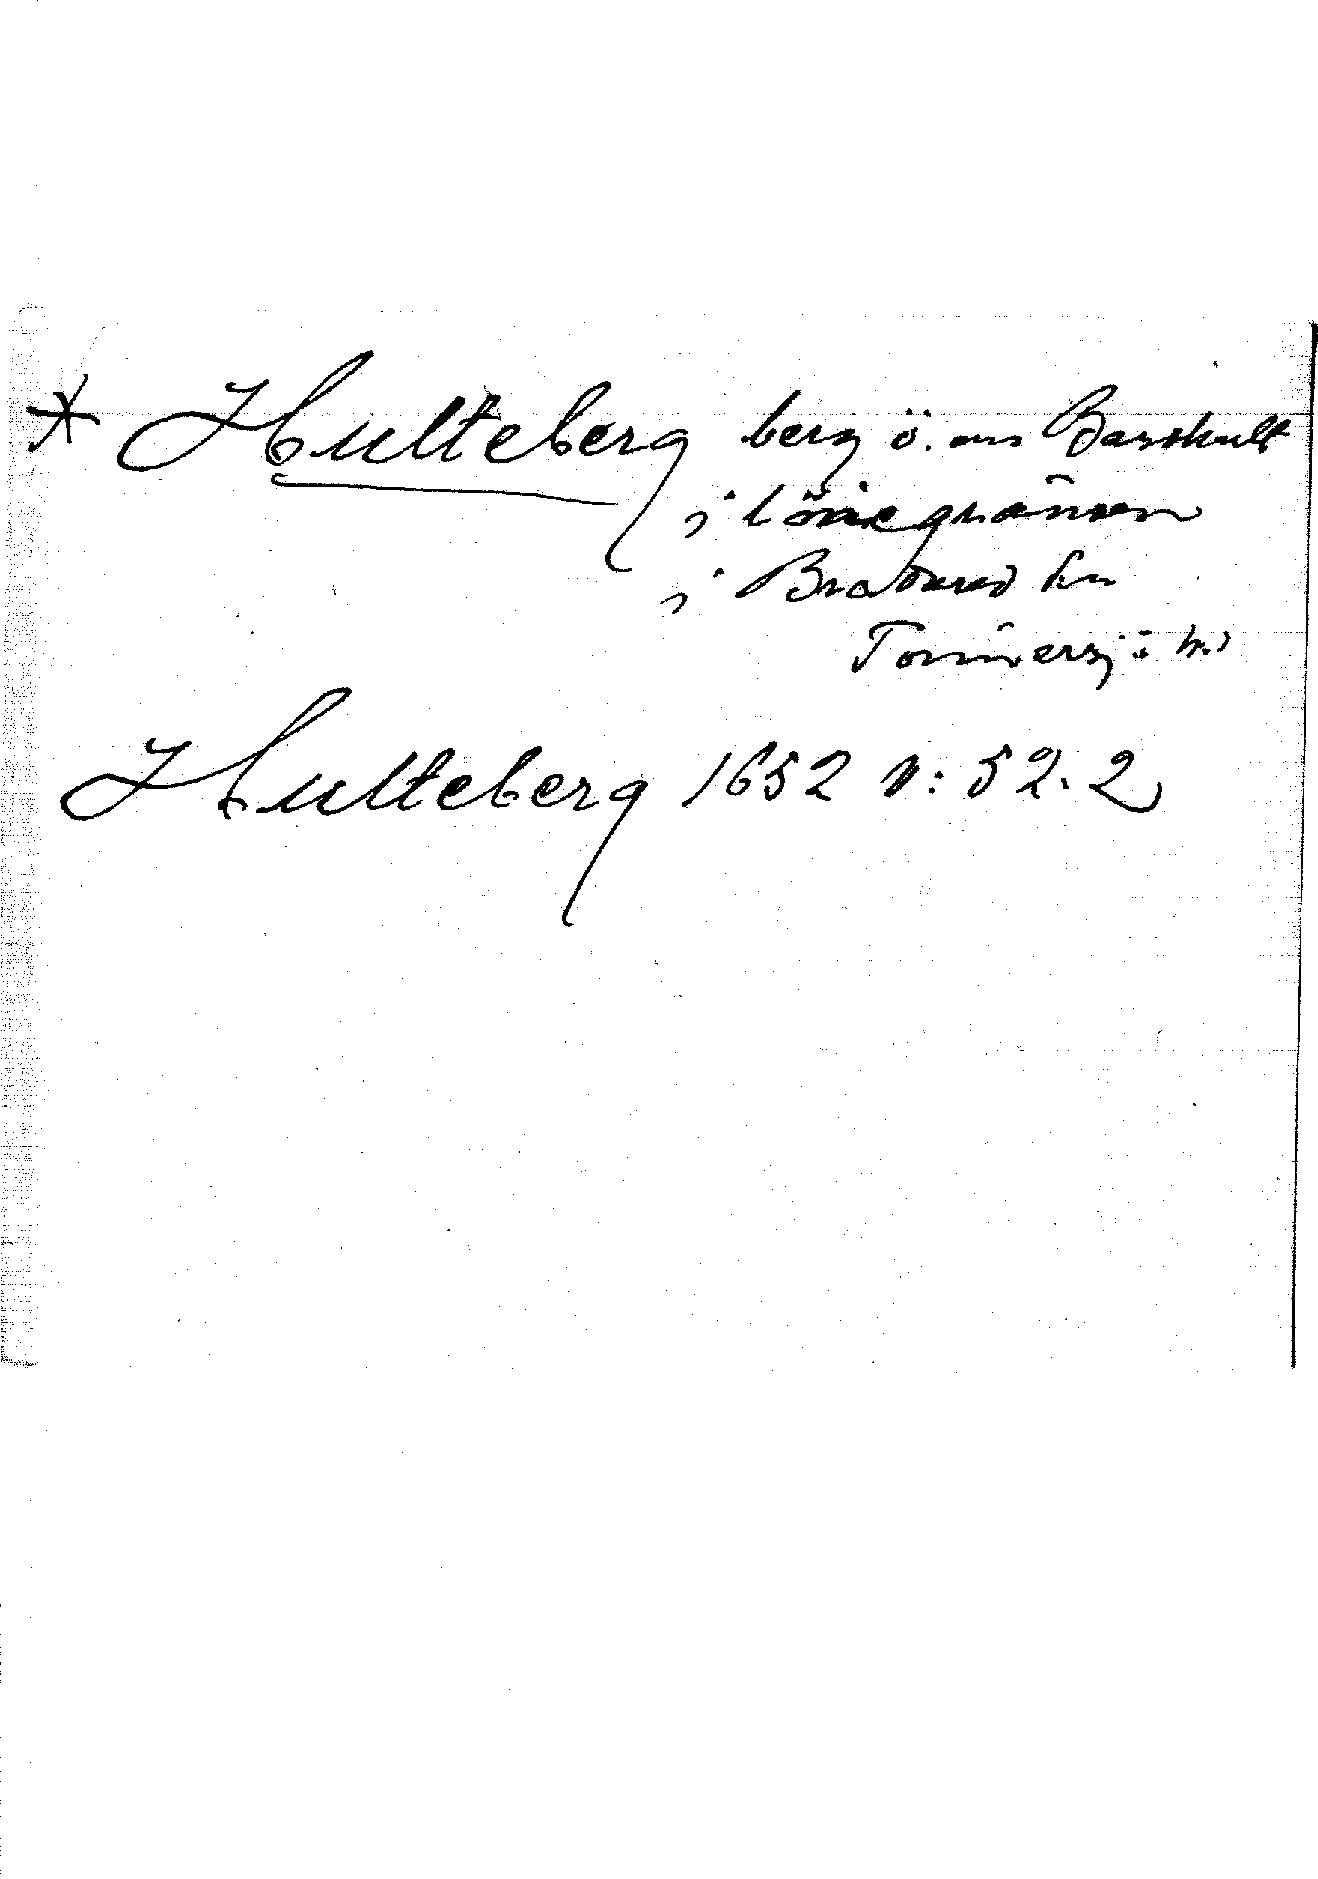 * Hulteberg berg ö. om Barkhult
i länegränsen
i Bratared sn
Tönnersjö hd
Hulteberg 1652 n: 52. 2